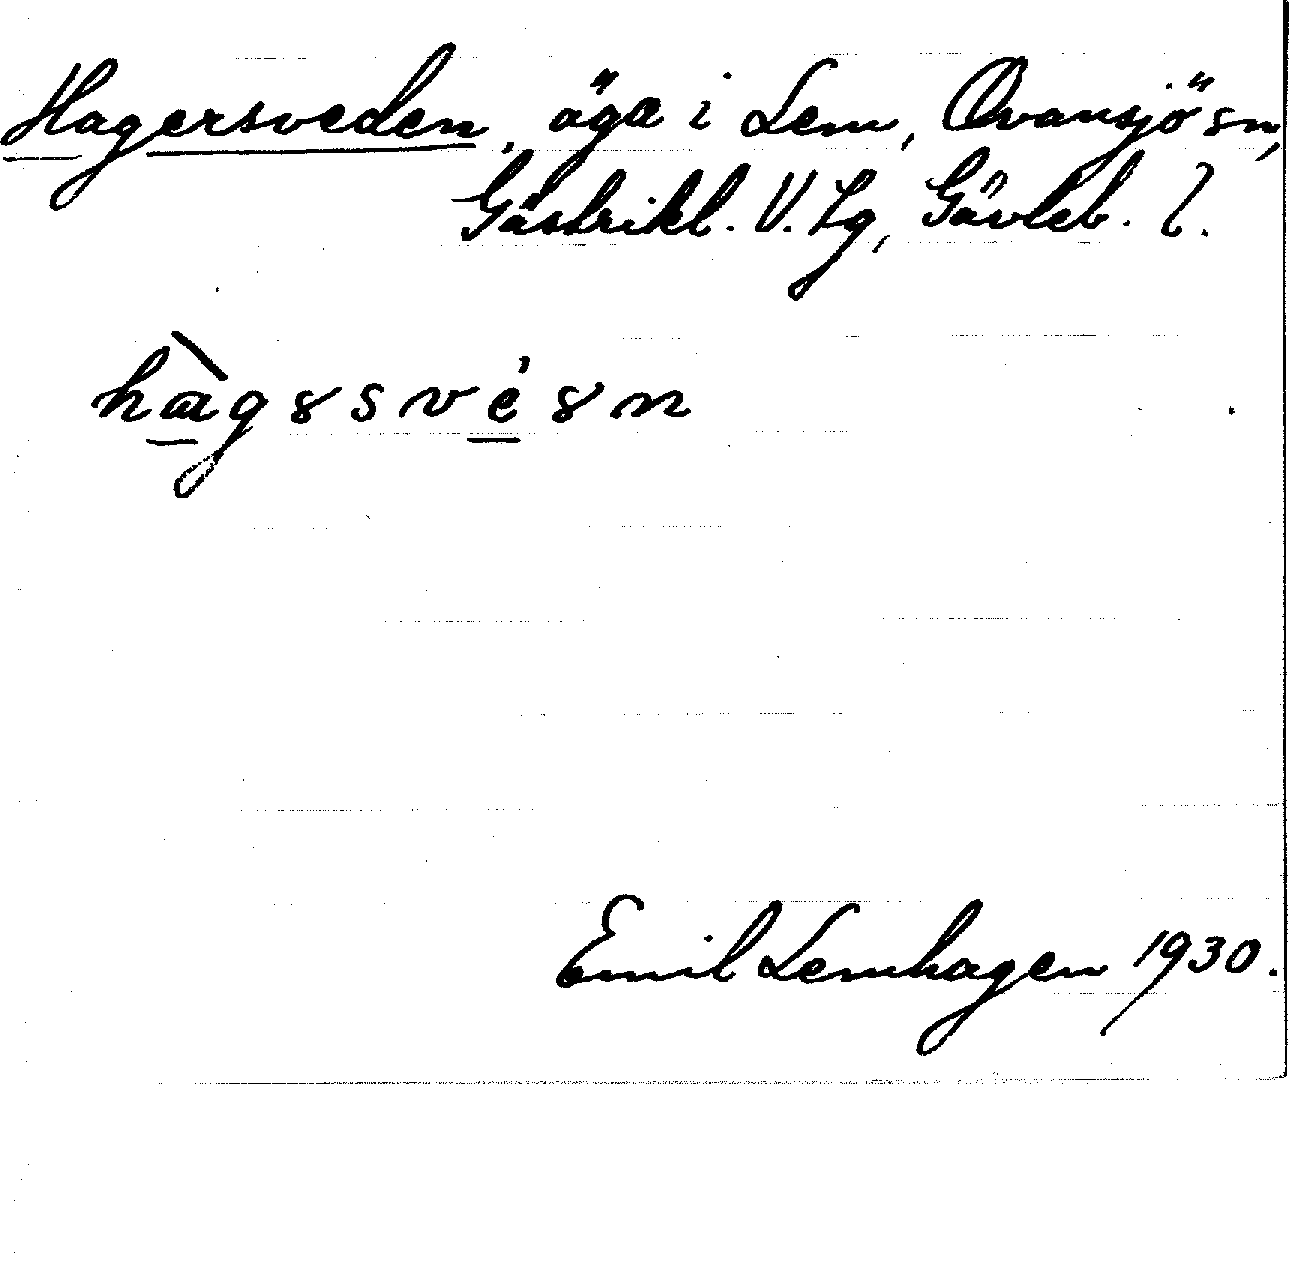 Hagersveden, äga i Lem, Ovansjö sn,
Gästrikl. V. Tg, Gävleb. l.
hàgssvésn
Emil Lemhagen 1930.